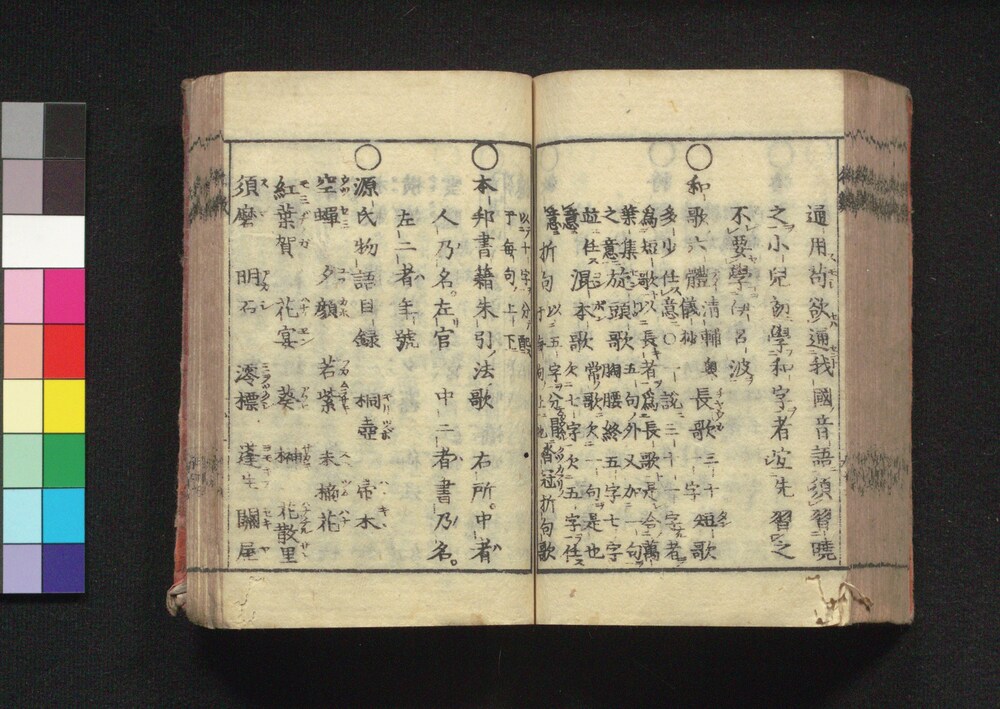 通用苟欲通我國音語須習曉
之小兒幼學和字者宜先習之
不要學伊呂波
○和歌六體 清輔奥儀抄 長歌三十字 短歌
多少任意○一說三十一字者
為短歌長者為長歌是令萬
葉集 旋頭歌五句外又加一句
之意 胸腰終五字七字
竝任 混本歌常歌欠一句是也
意 欠七字欠五字任
意 折句以五字分 冠折句歌
以十字分配
于每句上下
○本邦書籍朱引法歌 右所中者
人乃名左官 中二者書乃名
左二者年號
○源氏物語目録 桐壺 帚木
空蟬 夕顏 若紫 末摘花
紅葉賀 花宴 葵 榊 花散里
須磨 明石 澪標 蓬生 關屋